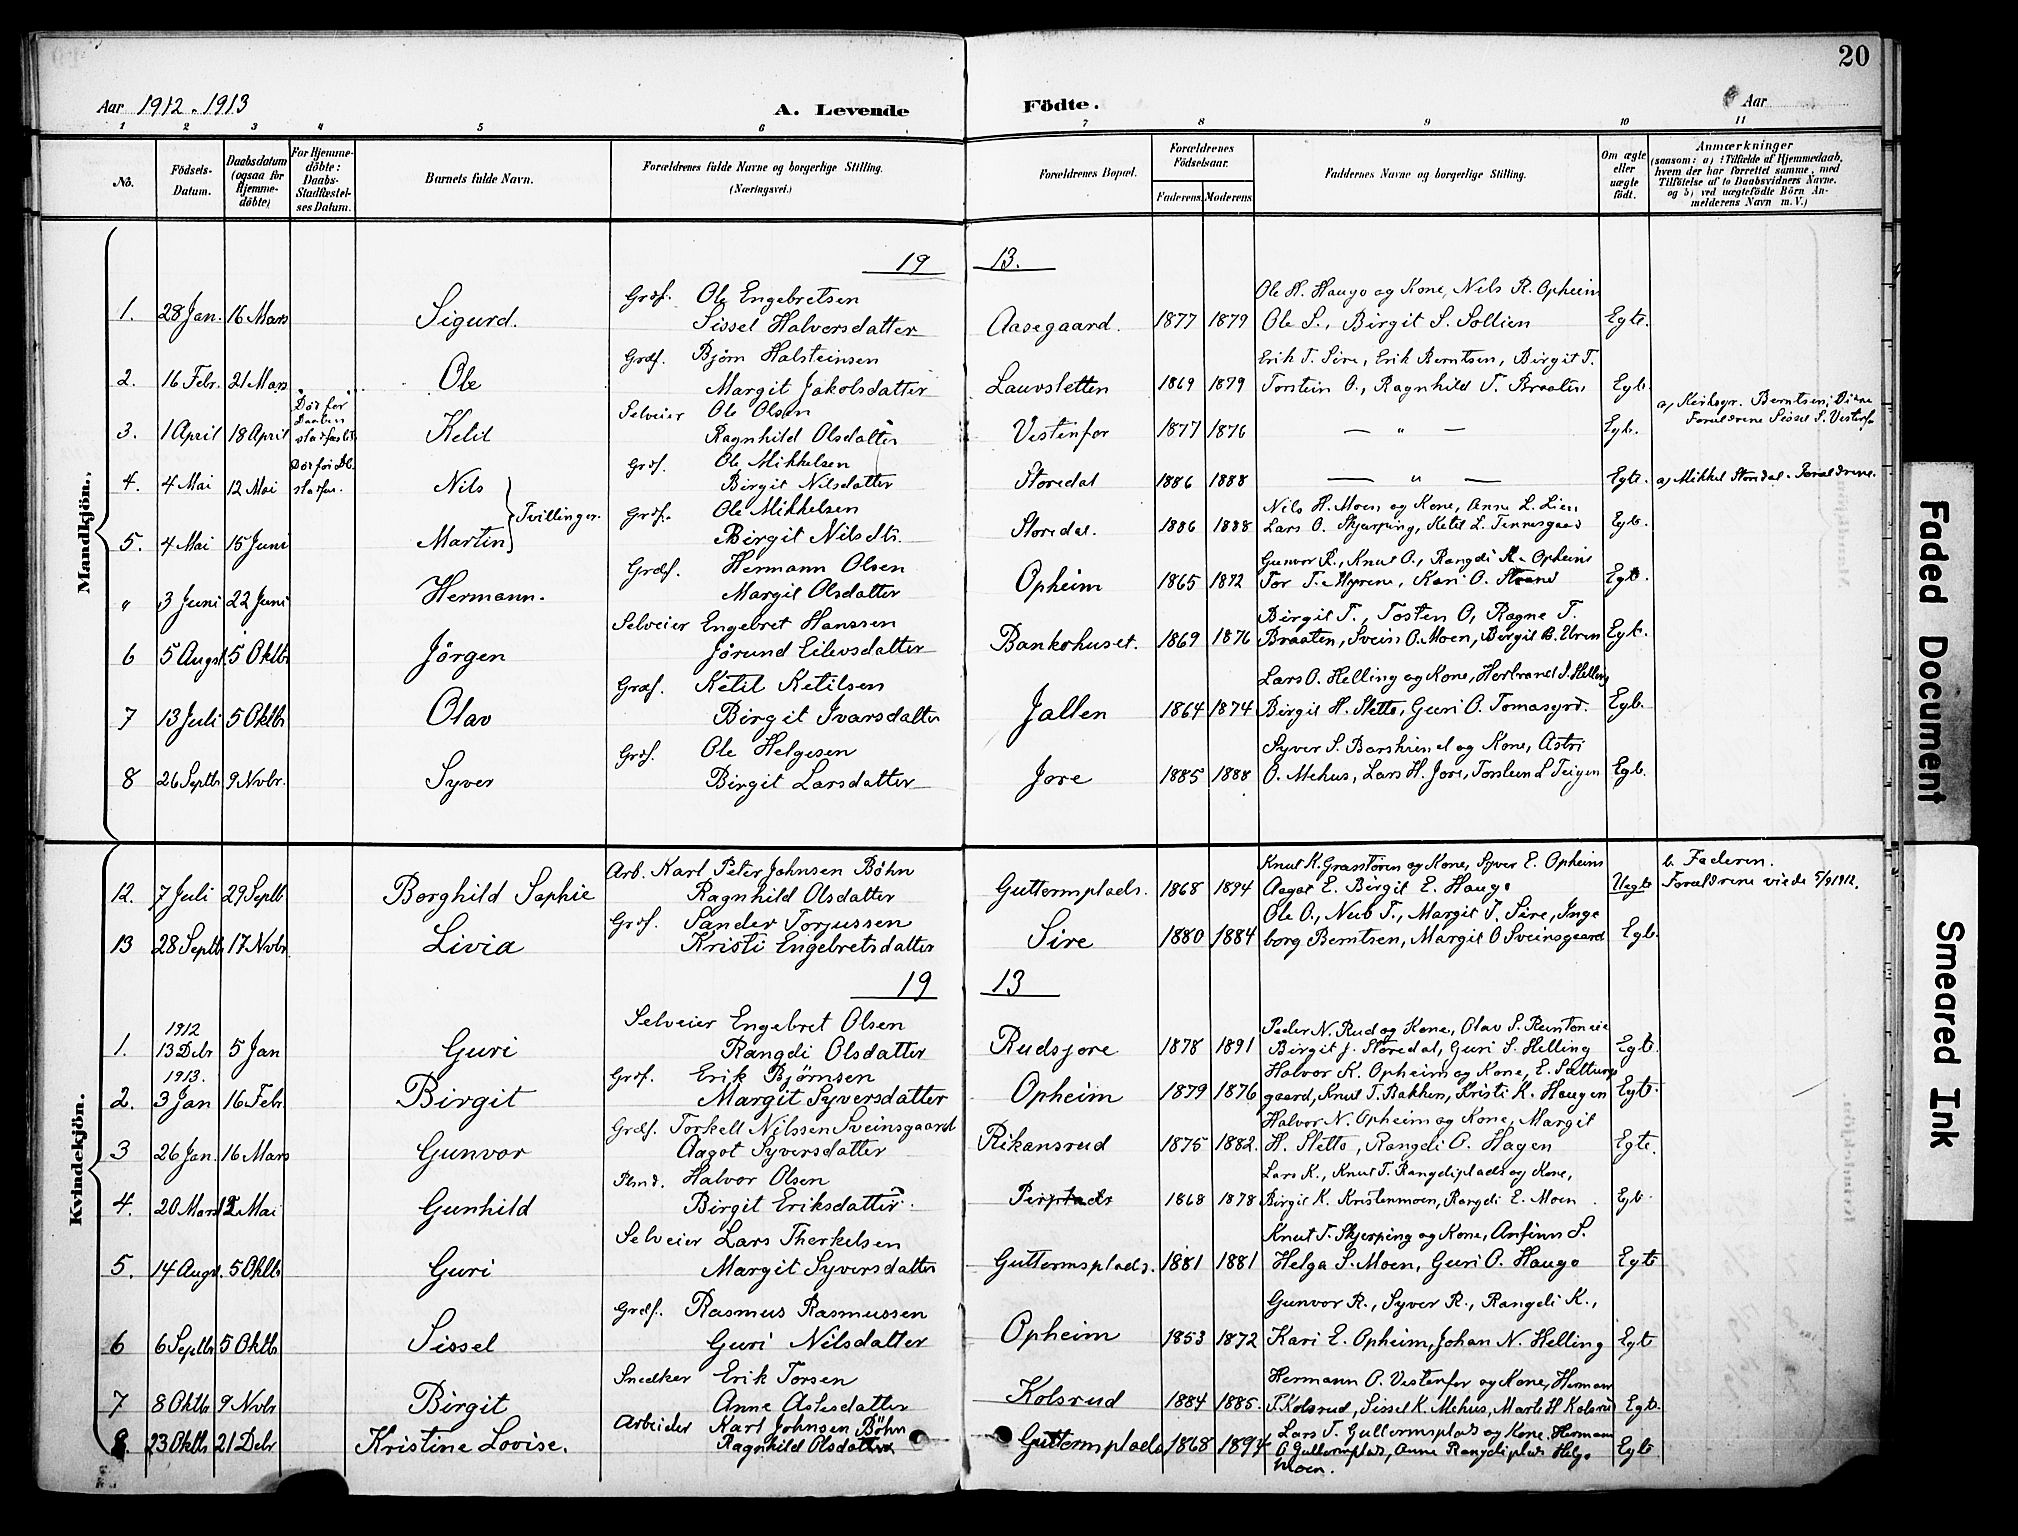 20
Aar 1912-1913
A. Levende Födte.
Aar
1 2 3 4 5 6 7 8 9 10 11
No.
Födsels-Datum.
Daabsdatum (ogsaa for Hjemmedöbte)
For Hjemmedöbte: Daabs-Stadfæstelses Datum.
Barnets fulde Navn.
Forældrenes fulde Navne og borgerlige Stilling. (Næringsvei.)
Forældrenes Bopæl.
Forældrenes Födselsaar.
Faderens. Moderens
Faddernes Navne og borgerlige Stilling.
Om ægte eller uægte födt.
Anmærkninger
(saasom: a) i Tilfælde af Hjemmedaab, hvem der har forrettet samme, med Tilföielse af to Daabsvidners Navne, og b) ved uægtefödte Börn Anmelderens Navn m. V.)
Mandkjön.
19 13.
1. 28 Jan. 16 Mars Sigurd. Grdf. Ole Engebretsen Sissel Halvorsdatter Aasegaard. 1877 1879 Ole H. Haugo og Kone, Nils R. Opheim Ole S., Birgit S. Sollien Egte.
2. 16 Febr. 21 Mars Ole Grdf. Björn Halsteinsen Margit Jakobsdatter Lauvsletten 1869 1879 Erik T. Sire, Erik Berntsen, Birgit T. Torstein O., Ragnhild T. Braaten Egte
3. 1 April 18 April Död før Daaben stadfæstet Ketil Selveier Ole Olsen Ragnhild Olsdatter Vestenfor 1877 1876 — " — Egte. a) Kirkesgr. Berntsen; Forældrene Sissel S. Vestenfor
4. 4 Mai 12 Mai Död før Db. stadfæs. Nils Grdf. Ole Mikkelsen Birgit Nilsdatter Storedal 1886 1888 — " — Egte. a) Mikkel Storedal. Forældrene.
Tvillinger.
5. 4 Mai 15 Juni Martin Grdf. Ole Mikkelsen Birgit Nilsdtr. Storedal. 1886 1888 Nils H. Moen og Kone, Anne L. Lien Lars O. Skjerping, Ketil L. Tennesgaard Egte.
" 3 Juni 22 Juni Hermann. Grdf. Hermann Olsen Margit Olsdatter Opheim 1865 1872 Gunvor R., Knut O., Rangdi K. Opheim Tor T. Myrene, Kari O. Strand Egte.
6 5 Augst. 5 Oktbr Jörgen Selveier Engebret Hanssen Jörund Eilevsdatter Bankohuset. 1869 1876 Birgit T., Tosten O, Ragne T. Braaten, Svein O. Moen, Birgit B. Uren Egte.
7 13 Juli 5 Oktbr Olav Grdf. Ketil Ketilsen Birgit Ivarsdatter Jallen 1864 1874 Lars O. Helling og Kone, Herbrand S. Helling Birgit H. Sletto, Guri O. Tomasgrd. Egte.
8 26 Septbr 9 Nvbr. Syver Grdf. Ole Helgesen Birgit Larsdatter Jore 1885 1888 Syver S. og Kone, Astri O. Mehus, Lars H. Jore, Torslund Teigen Egte.
Kvindekjön.
12. 7 Juli 29 Septb Borghild Sophie Arb. Karl Peter Johnsen Böhn Ragnhild Olsdatter Guttormplads. 1868 1894 Knut K. og Kone, Syver E. Opheim Aagot E. Birgit E. Haugo Uegte b. Faderen. Forældrene viede 5/9 1912.
13 28 Septbr 17 Nvbr Livia Grdf. Sander Torjussen Kristi Engebretsdatter Sire 1880 1884 Ole O., Nub T., Margit T. Sire, Ingeborg Berntsen, Margit O Sveinsgaard Egte.
19 13
1. 1912 13 Debr 5 Jan Guri Selveier Engebret Olsen Rangdi Olsdatter Rudsjore 1878 1891 Peder N. Rud og Kone, Olav S. Birgit J. Storedal, Guri S. Helling Egte.
2. 1913. 3 Jan 16 Febr. Birgit Grdf. Erik Björnsen Margit Syversdatter Opheim 1879 1876 Halvor K. Opheim og Kone, E. Satturgaard, Knut T. Bakken, Kristi K. Haugen Egte.
3 26 Jan. 16 Mars Gunvor Grdf. Torkell Nilssen Sveinsgaard Aagot Syversdatter Rikansrud 1875 1882. Halvor N. Opheim og Kone, Margit H. Sletto, Rangdi O. Hagen Egte.
4. 20 Mars 12 Mai Gunhild Plmd. Halvor Olsen Birgit Eriksdatter. Perplads 1868 1878 Lars K., Knut T. Rangdiplads og Kone, Birgit K. Kristenmoen, Rangdi E. Moen. Egte.
5. 14 Augst. 5 Oktb Guri Selveier Lars Therkelsen Margit Syversdatter Guttormsplads. 1881 1881 Knut T. Skjerping og Kone, Anfinn S. Helga S. Moen, Guri O. Haugo Egte
6 6 Septbr 5 Oktbr Sissel Grdf. Rasmus Rasmussen Guri Nilsdatter Opheim 1853 1872 Gunvor R., Syver R., Rangdi K., Kari E. Opheim, Johan N. Helling Egte
7 8 Oktbr 9 Nvbr Birgit Snedker Erik Torsen Anne Aslesdatter Kolsrud 1884 1885. Hermann O. Vestenfor og Kone, Herman T. Kolsrud, Sissel K. Mehus, Marte H Kolsrud Egte.
8. 23 Oktbr 21 Debr Kristine Lovise. Arbeider Karl Johnsen Böhn Ragnhild Olsdatter Guttormsplads 1868 1894 Lars T. Guttormsplads og Kone, Hermann O Guttormsplads, Anne Rangdiplads Helge Moen. Egte
Faded Document
Smeared Ink